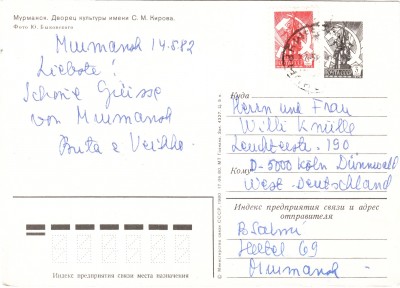 Мурманск. Дворец культуры имени С. М. Кирова.
Фото Ю. Быковского
Murmansk 14.6.82
Liebste!
Schöne Grüsse
von Murmansk
Куда
Herrn und Frau
Willi Knülle
190
Кому
D-5000 Köln Dünnwald
West-Deutschland
Индекс предприятия связи и адрес отправителя
B Salmi
69
Murmansk
Индекс предприятия связи места назначения
© Министерство связи СССР. 1980